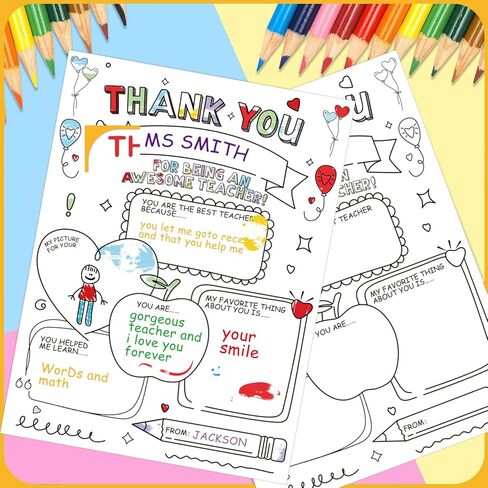 THANK YOU
TH MS SMITH
FOR BEING AN
AWESOME TEACHER!
YOU ARE THE BEST TEACHER
BECAUSE.....
you let me goto rece
and that you help me
MY PICTURE
FOR YOUR
YOU ARE.....
gorgeous
teacher and
i love you
forever
MY FAVORITE THING
ABOUT YOU IS.....
your
smile
YOU HELPED
ME LEARN.....
WorDs and
math
FROM: JACKSON
OU
TEACHER!
TEACHER
MY FAVORITE THING
ABOUT YOU IS.....
YOU ARE.....
FROM: